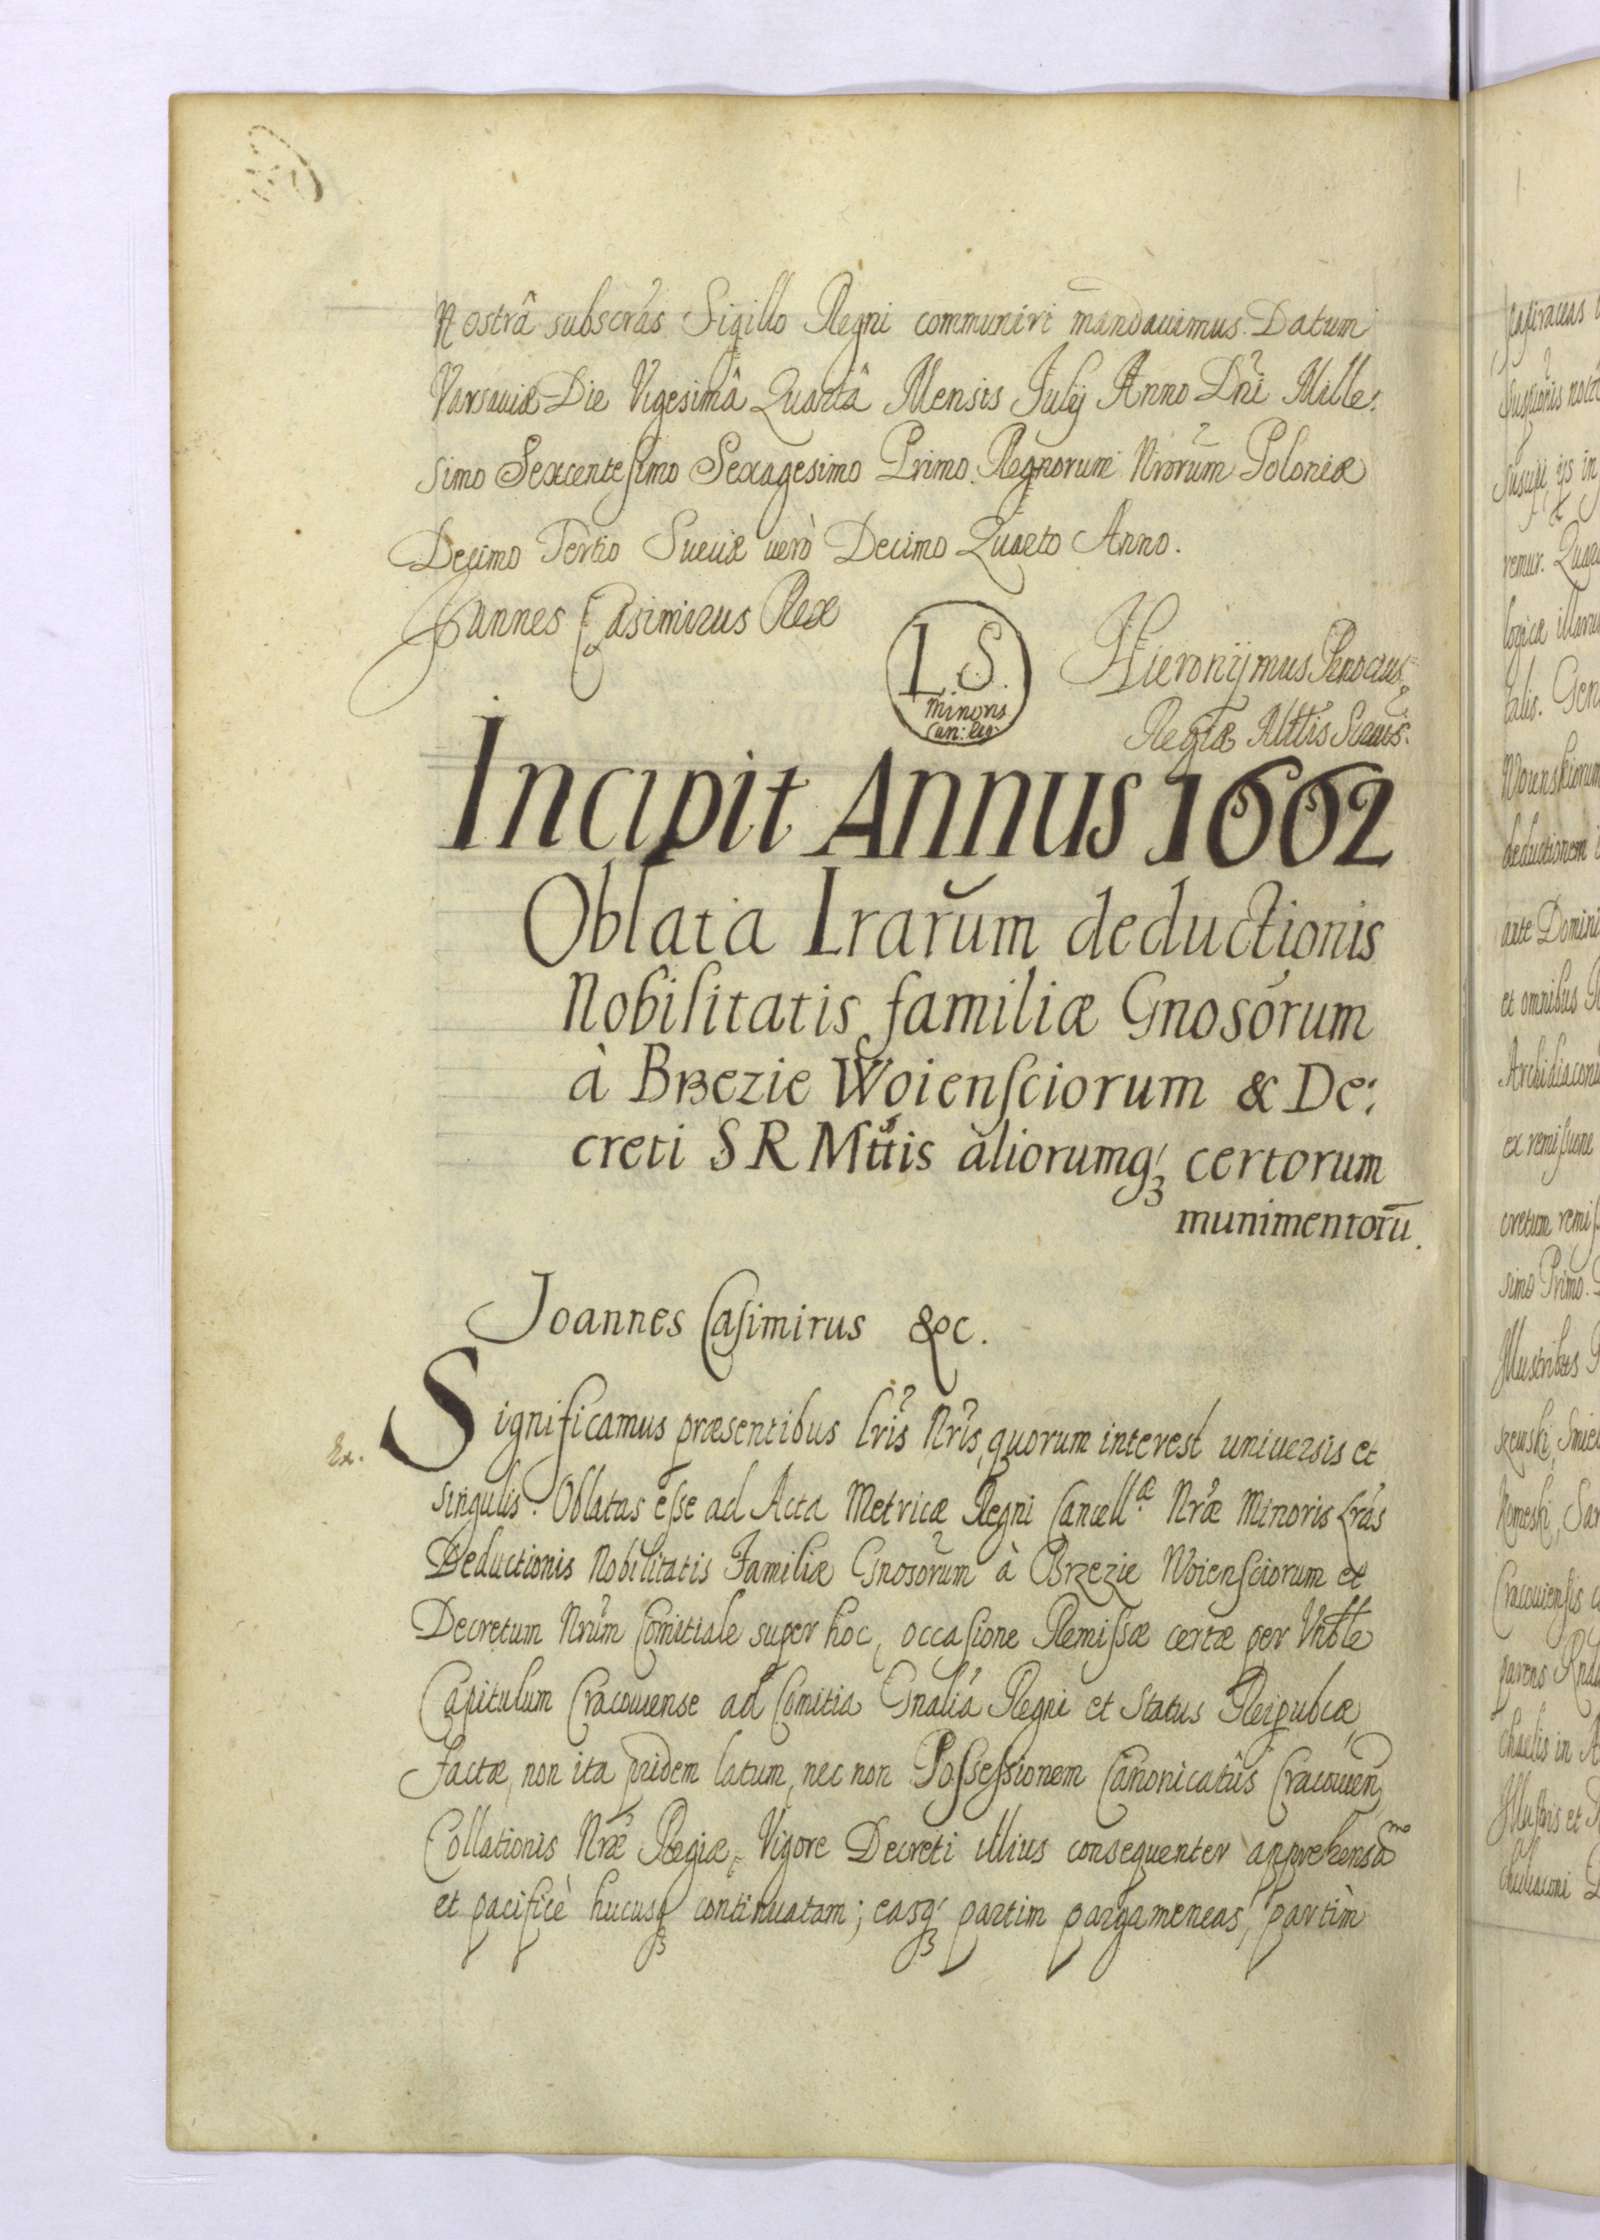 Nostrâ subscrãs Sigillo Regni communiri mandauimus. Datum
Varsauiæ Die Vigesimâ Quartâ Mensis Julij Anno Dñi Mille:
simo Sexcentesimo Sexagesimo Primo. Regnorum Nrõrum Poloniæ
Decimo Tertio Sueciæ uerò Decimo Quarto Anno.
Joannes Casimirus Rex
L. S.
Minoris
Can: Reg.
Hieronijmus Pinocius
Regiæ Mttis Secrius.
Incipit Annus 1662
Oblata Lrarũm deductionis
Nobilitatis familiæ Gnosórum
à Brzezie Woiensciorum & De:
creti S R Mttis aliorumq; certorum
munimentorũ.
Joannes Casimirus &c.
Significamus præsentibus lris Nris, quorum interest uniuersis et
Ex.
singulis. Oblatas esse ad Acta Metricæ Regni Cancell.æ Nræ Minoris Lrãs
Deductionis Nobilitatis Familiæ Gnosorum à Brzezie Woiensciorum et
Decretum Nrũm Comitiale super hoc, occasione Remissæ certæ per Vnble
Capitulum Cracouiense ad Comitia Gnalia Regni et Status Reipublcæ
factæ, non ita pridem latum, nec non Possessionem Canonicatûs Cracouien
Collationis Nræ Regiæ, Vigore Decreti illius consequenter apprehensã
et pacificè hucusq; continuatam; easq; partim pargameneas, partìm